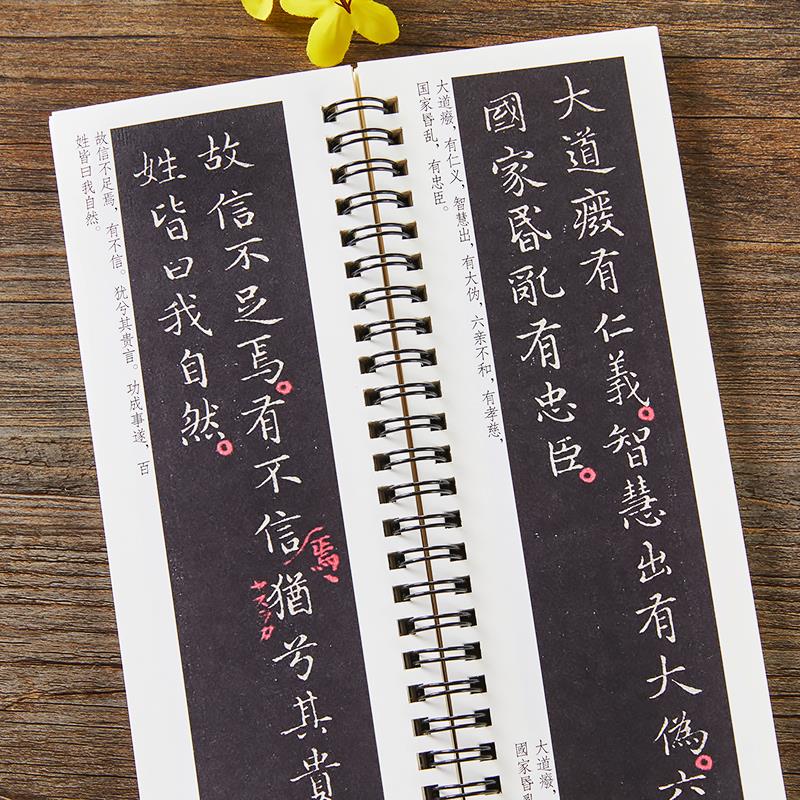 大道癈有仁義智慧出有大偽六
國家昬亂有忠臣
大道癈,有仁义,智慧出,有大伪,六亲不和,有孝慈,
国家昬乱,有忠臣。
大道癈,
國家昬亂
故信不足焉有不信猶兮其貴
焉
姓皆曰我自然
故信不足焉,有不信。犹兮其贵言。功成事遂,百
姓皆曰我自然。